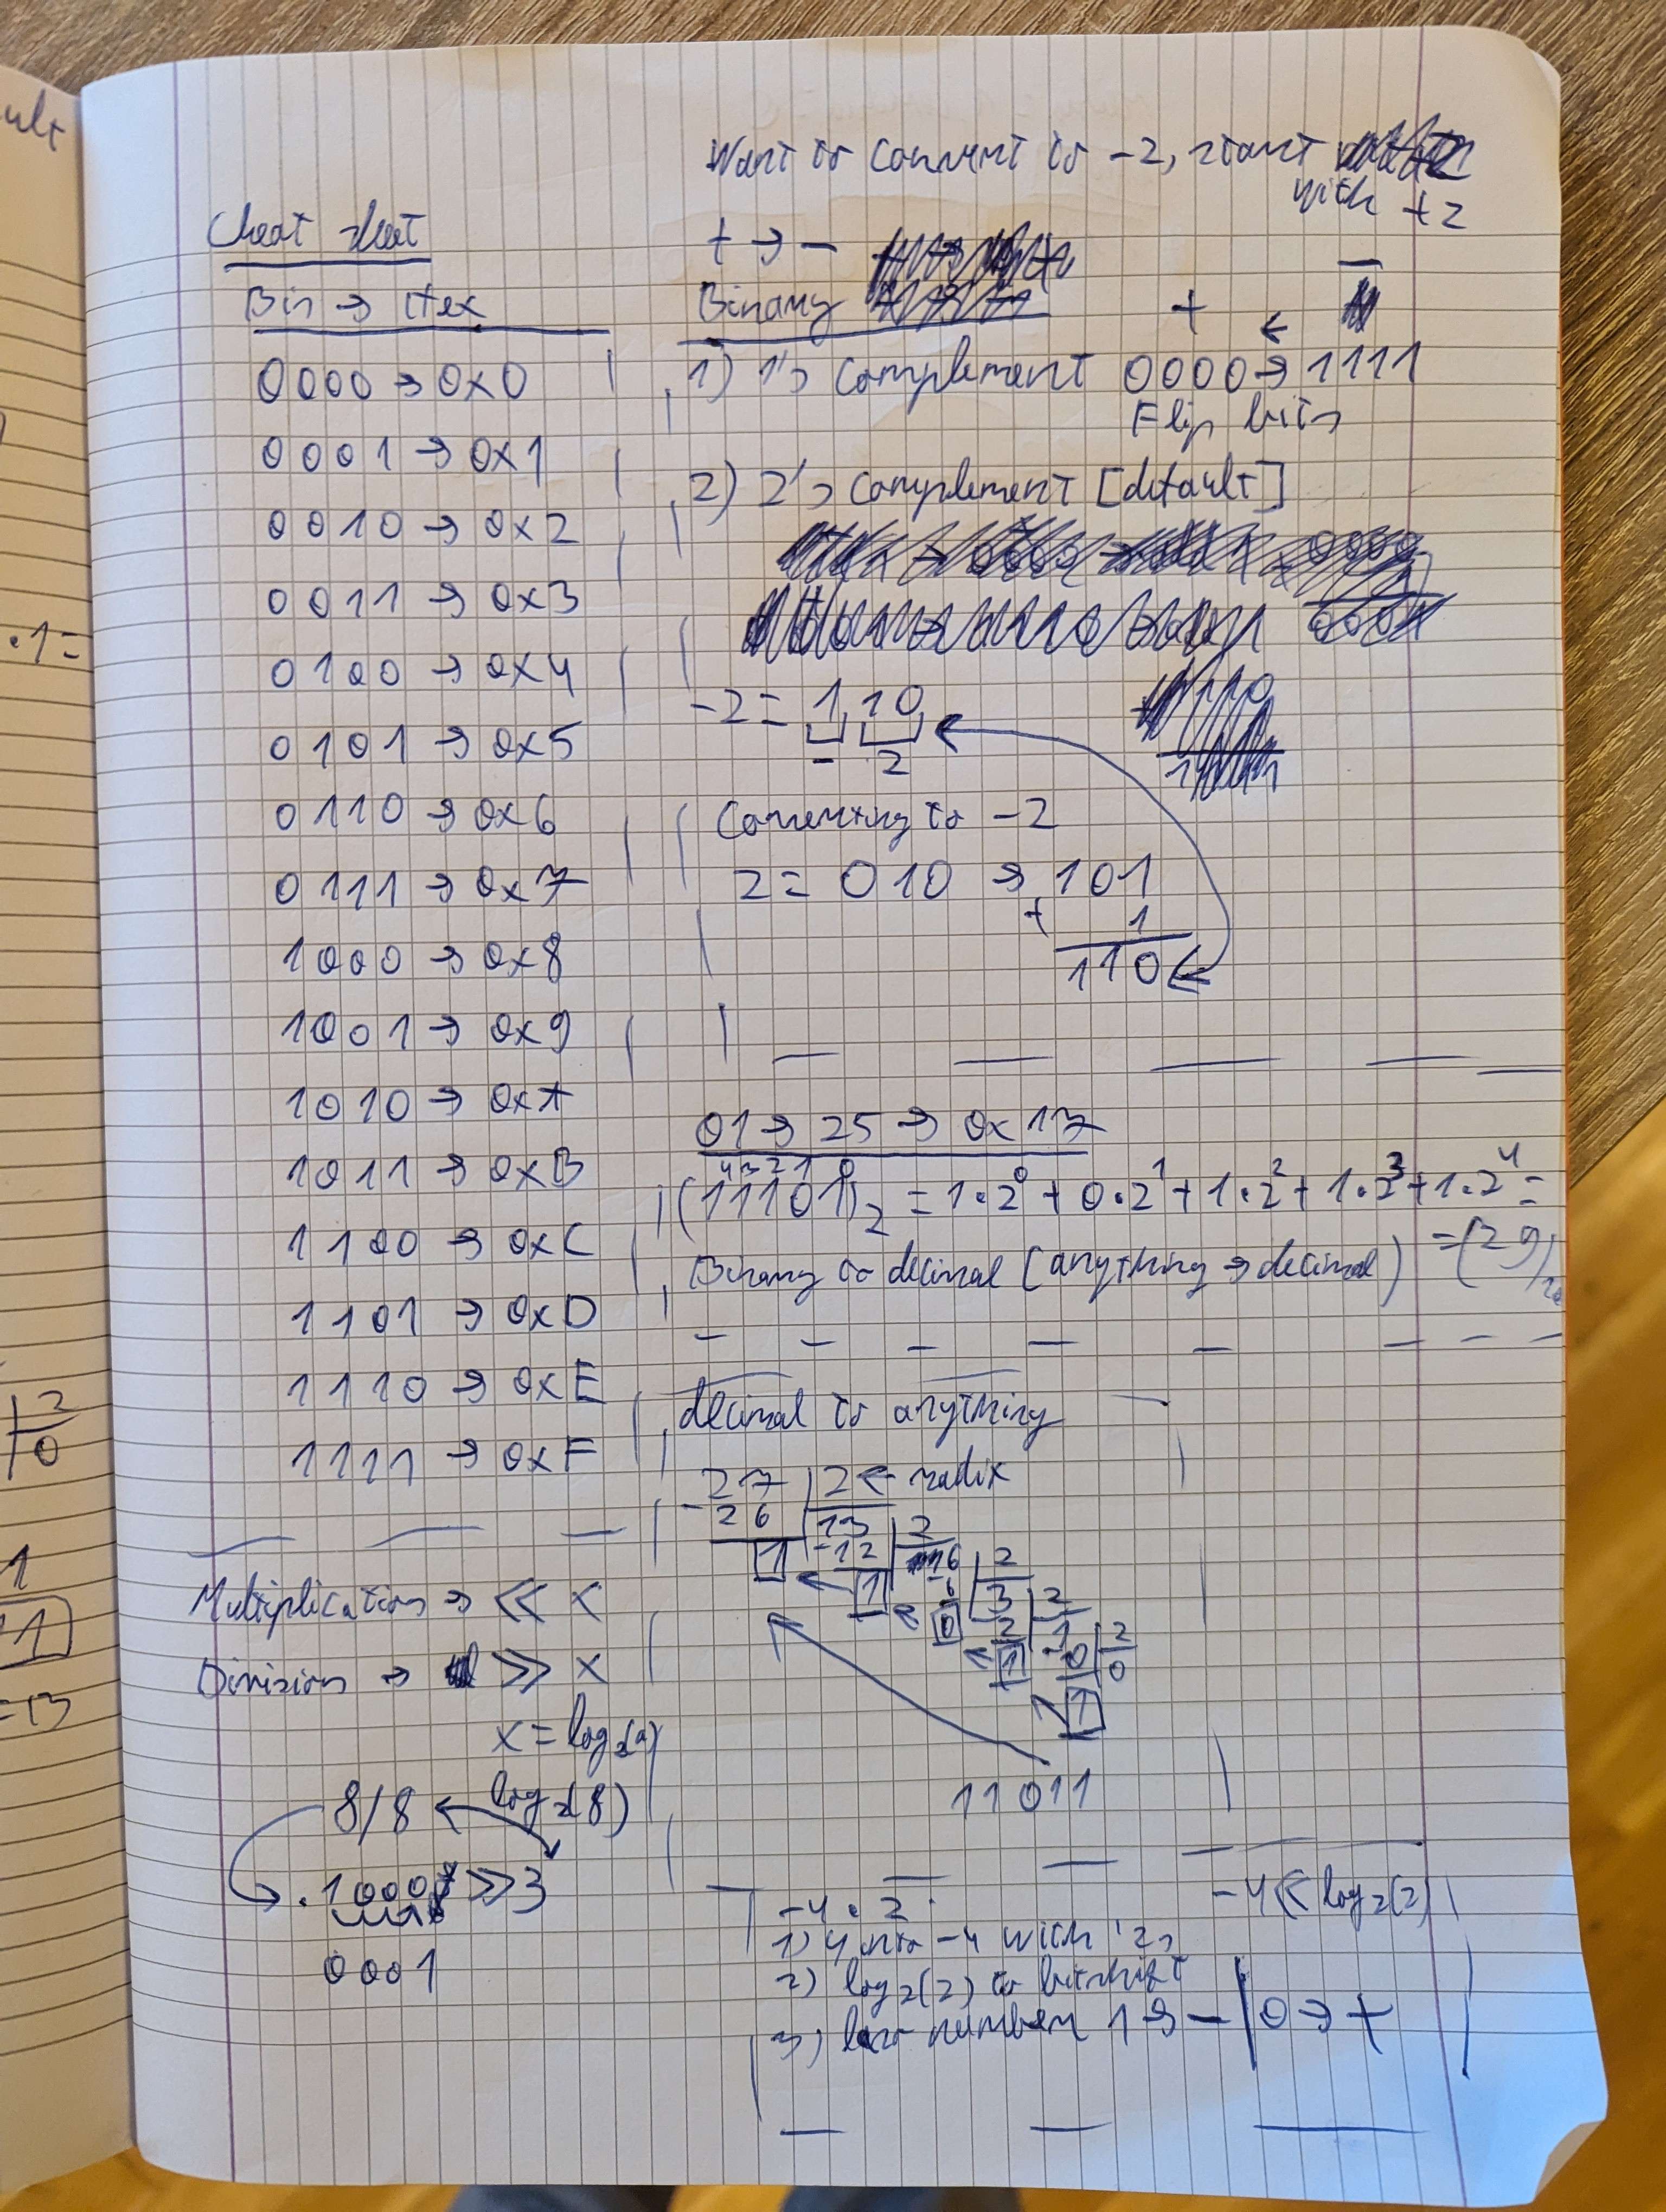 ult
.1=
2
0
1
1
=13
Cheat sheet
Bin → Hex
0000 → 0x0
0001 → 0x1
0010 → 0x2
0011 → 0x3
0100 → 0x4
0101 → 0x5
0110 → 0x6
0111 → 0x7
1000 → 0x8
1001 → 0x9
1010 → 0xA
1011 → 0xB
1100 → 0xC
1101 → 0xD
1110 → 0xE
1111 → 0xF
Multiplication → << x
Division → >> x
x = log₂(a)
8/8 ← log₂(8)
1000 >> 3
0001
Want to convert to -2, start
with +2
+ → -
Binary
+ ← -
1) 1's complement 0000 → 1111
Flip bits
2) 2's complement [default]
-2 = 1 10
- 2
Converting to -2
2 = 010 → 101
+ 1
110
01 → 25 → 0x17
4 3 2 1 0
(11101)₂ = 1·2⁰ + 0·2¹ + 1·2² + 1·2³ + 1·2⁴ =
Binary to decimal [anything → decimal) = (29)₁₀
decimal to anything
27 | 2 ← radix
-26 13 2
1 -12 6 2
1 6 3 2
0 2 1 2
1 0 0
1
11011
-4 · 2 -4 << log₂(2)
1) 4 into -4 with '2s
2) log₂(2) to bitshift
3) number 1 → - | 0 → +